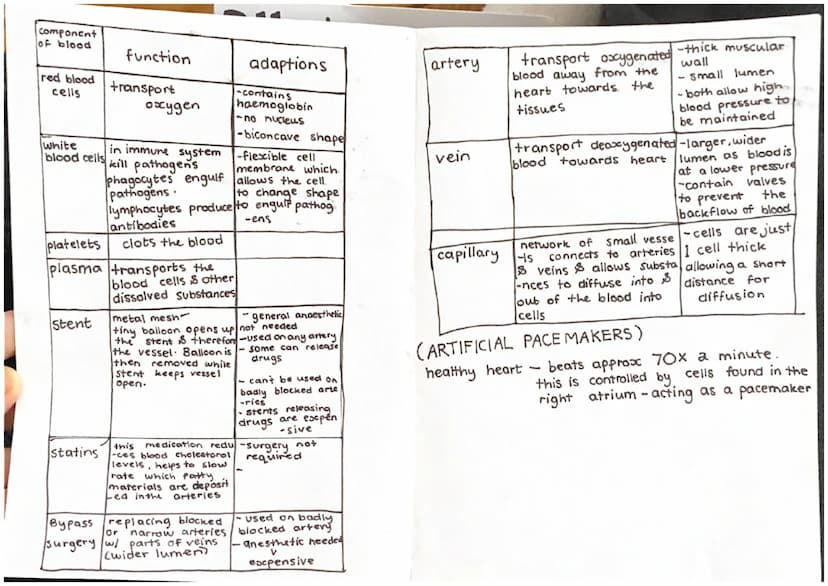 component
of blood
function
adaptions
red blood
cells
transport
oxygen
-contains
haemoglobin
-no nucleus
-biconcave shape
white
blood cells
in immune system
kill pathogens
phagocytes engulf
pathogens.
lymphocytes produce
antibodies
-flexible cell
membrane which
allows the cell
to change shape
to engulf pathog
-ens
platelets
clots the blood
plasma
transports the
blood cells & other
dissolved substances
stent
metal mesh-
tiny balloon opens up
the stent & therefor
the vessel. Balloon is
then removed while
stent keeps vessel
open.
- general anaesthetic
not needed
-used on any artery
- some can release
drugs
- can't be used on
badly blocked arte
-ries
- stents releasing
drugs are expen
-sive
statins
this medication redu
-ces blood cholestoral
levels, helps to slow
rate which fatty
materials are deposit
-ed in the arteries
-surgery not
required
-
Bypass
surgery
replacing blocked
or narrow arteries
w/ parts of veins
(wider lumen)
- used on badly
blocked artery
- anesthetic needed
expensive
artery
transport oxygenated
blood away from the
heart towards the
tissues
-thick muscular
wall
- small lumen
- both allow high
blood pressure to
be maintained
vein
transport deoxygenated
blood towards heart
-larger, wider
lumen as blood is
at a lower pressure
-contain valves
to prevent the
backflow of blood
capillary
network of small vesse
-ls connects to arteries
& veins & allows substa
-nces to diffuse into &
out of the blood into
cells
- cells are just
1 cell thick
allowing a short
distance for
diffusion
(ARTIFICIAL PACEMAKERS)
healthy heart - beats approx 70x a minute.
this is controlled by cells found in the
right atrium - acting as a pacemaker